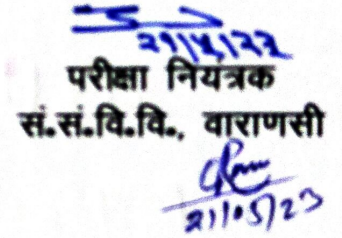 परीक्षा नियंत्रक
सं.सं.वि.वि., वाराणसी
21/05/23